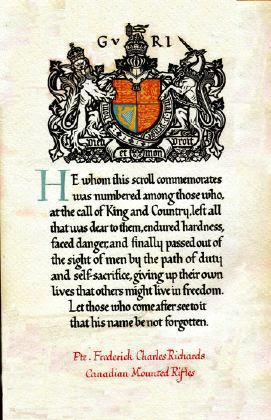 G V RI
Dieu et mon Droit
HE whom this scroll commemorates
was numbered among those who,
at the call of King and Country, left all
that was dear to them, endured hardness,
faced danger, and finally passed out of
the sight of men by the path of duty
and self-sacrifice, giving up their own
lives that others might live in freedom.
Let those who come after see to it
that his name be not forgotten.
Pte. Frederick Charles Richards
Canadian Mounted Rifles